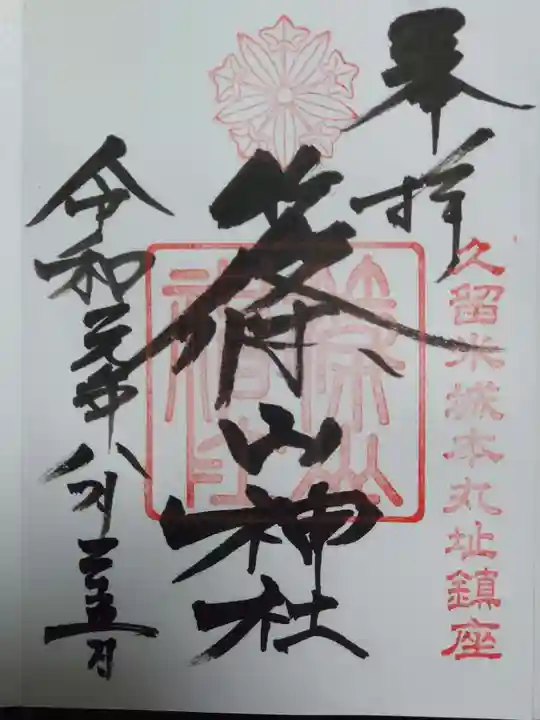 奉拝
久留米城本丸址鎮座
篠山神社
篠山神社
令和元年八月二十五日